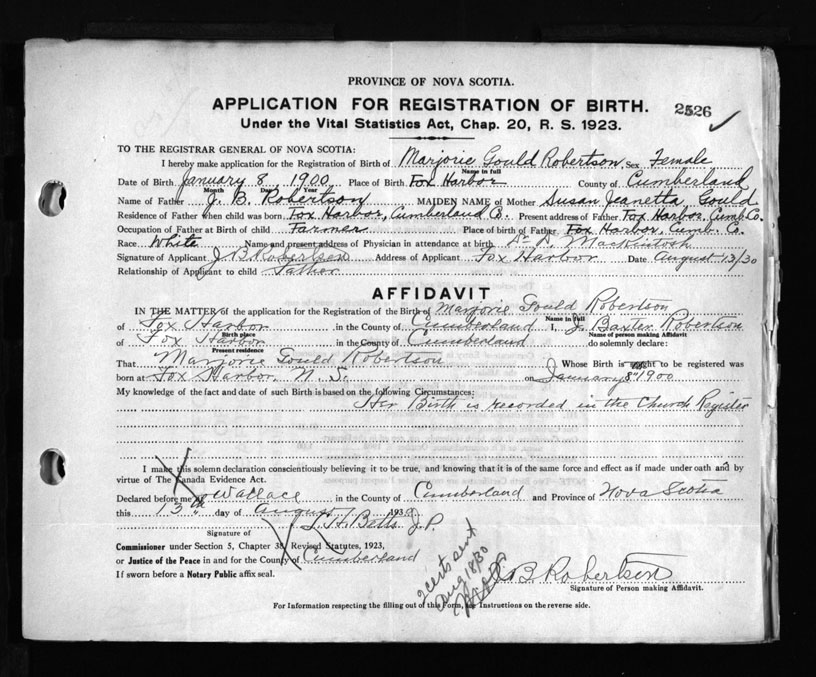 PROVINCE OF NOVA SCOTIA.
APPLICATION FOR REGISTRATION OF BIRTH.
2526
Under the Vital Statistics Act, Chap. 20, R. S. 1923.
TO THE REGISTRAR GENERAL OF NOVA SCOTIA:
I hereby make application for the Registration of Birth of Marjorie Gould Robertson Sex Female
Name in full
Date of Birth January 8, 1900 Place of Birth Fox Harbor County of Cumberland
Month Day Year
Name of Father J. B. Robertson MAIDEN NAME of Mother Susan Jeanetta Gould
Residence of Father when child was born Fox Harbor, Cumberland Co. Present address of Father Fox Harbor, Cumb. Co.
Occupation of Father at Birth of child Farmer Place of birth of Father Fox Harbor, Cumb. Co.
Race White Name and present address of Physician in attendance at birth Dr. D. Mackintosh
Signature of Applicant J B Robertson Address of Applicant Fox Harbor Date August 13/30
Relationship of Applicant to child Father
AFFIDAVIT
IN THE MATTER of the application for the Registration of the Birth of Marjorie Gould Robertson
Name in full
of Fox Harbor in the County of Cumberland I, J. Baxter Robertson
Birth place
Name of person making Affidavit
of Fox Harbor in the County of Cumberland do solemnly declare:
Present residence
That Marjorie Gould Robertson Whose Birth is sought to be registered was
born at Fox Harbor, N. S. on January 8th 1900
My knowledge of the fact and date of such Birth is based on the following Circumstances:
Her Birth is recorded in the Church Register
I make this solemn declaration conscientiously believing it to be true, and knowing that it is of the same force and effect as if made under oath and by
virtue of The Canada Evidence Act.
Declared before me at Wallace in the County of Cumberland and Province of Nova Scotia
this 13th day of August 1930
L. H. Betts J. P.
Signature of
Commissioner under Section 5, Chapter 38, Revised Statutes, 1923,
or Justice of the Peace in and for the County of Cumberland
If sworn before a Notary Public affix seal.
2 certs sent
Aug 18/30
J B Robertson
Signature of Person making Affidavit.
For Information respecting the filling out of this Form, see Instructions on the reverse side.